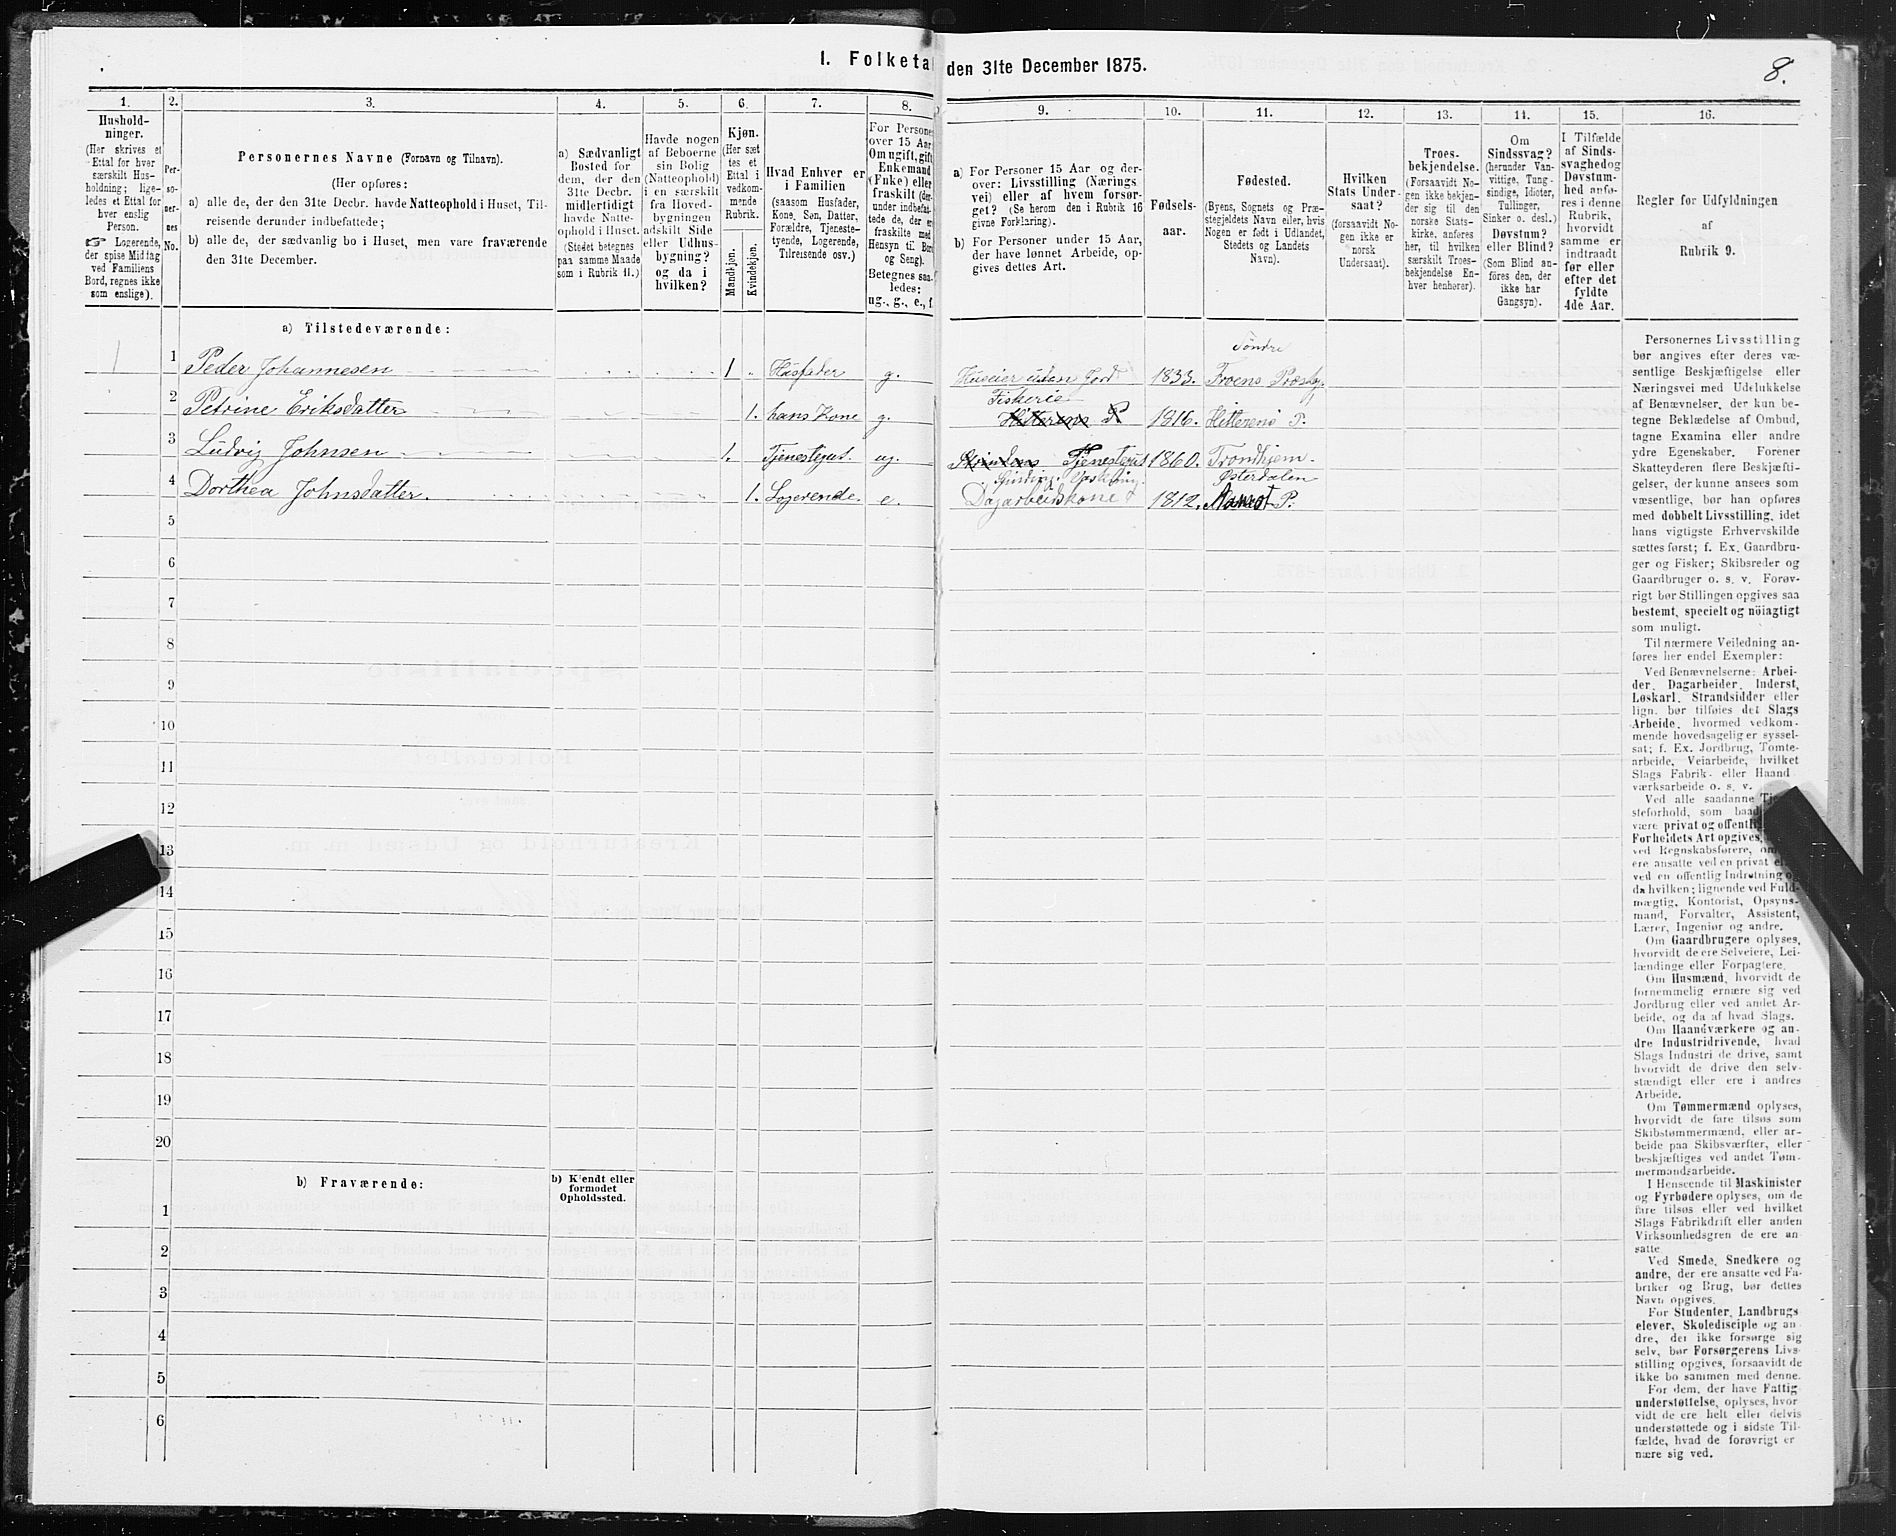 I. Folketal den 31te December 1875.
8.
1. 2. 3. 4. 5. 6. 7. 8. 9. 10. 11. 12. 13. 14. 15. 16.
Hushold-
ninger.
(Her skrives et
Ettal for hver
særskilt Hus-
holdning; lige-
ledes et Ettal for
hver enslig
Person.
☞ Logerende,
der spise Middag
ved Familiens
Bord, regnes ikke
som enslige).
Per-
so-
ner-
nes
No.
Personernes Navne (Fornavn og Tilnavn).
(Her opføres:
a) alle de, der den 31te Decbr. havde Natteophold i Huset, Til-
reisende derunder indbefattede;
b) alle de, der sædvanlig bo i Huset, men vare fraværende
den 31te December.
a) Sædvanligt
Bosted for
dem, der den
31te Decbr.
midlertidigt
havde Natte-
ophold i Huset.
(Stedet betegnes
paa samme Maade
som i Rubrik 11.)
Havde nogen
af Beboerne
sin Bolig
(Natteophold)
i en særskilt
fra Hoved-
bygningen
adskilt Side
eller Udhus-
bygning?
og da i
hvilken?
Kjøn.
(Her sæt
tes et
Ettal i
vedkom-
mende
Rubrik.
Mandkjøn.
Kvindekjøn.
Hvad Enhver er
i Familien
(saasom Husfader,
Kone, Søn, Datter,
Forældre, Tjeneste-
tyende, Logerende,
Tilreisende osv.)
For Personer
over 15 Aar
Om ugift, gift
Enkemand
(Enke) eller
fraskilt (der-
under indbefat-
tede de, der er
fraskilte med
Hensyn til Bord
og Seng).
Betegnes saa-
ledes:
ug., g., e., f.
a) For Personer 15 Aar og der-
over: Livsstilling (Nærings
vei) eller af hvem forsør-
get? (Se herom den i Rubrik 16
givne Forklaring).
b) For Personer under 15 Aar,
der have lønnet Arbeide, op-
gives dettes Art.
Fødsels-
aar.
Fødested.
(Byens, Sognets og Præ-
stegjeldets Navn eller, hvis
Nogen er født i Udlandet,
Stedets og Landets
Navn).
Hvilken
Stats Under-
saat?
(forsaavidt No-
gen ikke er
norsk
Undersaat).
Troes-
bekjendelse.
(Forsaavidt No-
gen ikke bekjen-
der sig til den
norske Stats-
kirke, anføres
her, til hvilken
særskilt Troes-
bekjendelse En-
hver henhører).
Om
Sindssvag?
(herunder Van-
vittige, Tung-
sindige, Idioter,
Tullinger,
Sinker o. desl.)
Døvstum?
eller Blind?
(Som Blind an-
føres den, der
ikke har
Gangsyn).
I Tilfælde
af Sinds-
svaghed og
Døvstum-
hed anfø-
res i denne
Rubrik,
hvorvidt
samme er
indtraadt
før eller
efter det
fyldte
4de Aar.
Regler for Udfyldningen
af
Rubrik 9.
a) Tilstedeværende:
1 1 Peder Johannesen 1 Husfader g. Huseier uden Jord Fiskerie 1833. Söndre Froens Præstg.
2 Petrine Eriksdatter 1. hans Kone g. Hitterens P 1816. Hitterens P.
3 Ludvig Johnsen 1. Tjenestegut. ug. Tjenestegut 1860. Trondhjem
4 Dorthea Johnsdatter. 1. Logerende. e. Dagarbeidskone 1812. Østerdalen Aamot P.
5
6
7
8
9
10
11
12
13
14
15
16
17
18
19
20
b) Fraværende:
b) Kjendt eller
formodet
Opholdssted.
1
2
3
4
5
6
Personernes Livsstilling
bør angives efter deres væ-
sentlige Beskjæftigelse eller
Næringsvei med Udelukkelse
af Benævnelser, der kun be-
tegne Beklædelse af Ombud,
tagne Examina eller andre
ydre Egenskaber. Forener
Skatteyderen flere Beskjæfti-
gelser, der kunne ansees som
væsentlige, bør han opføres
med dobbelt Livsstilling, idet
hans vigtigste Erhvervskilde
sættes først; f. Ex. Gaardbru-
ger og Fisker; Skibsreder og
Gaardbruger o. s. v. Forøv-
rigt bør Stillingen opgives saa
bestemt, specielt og nøiagtigt
som muligt.
Til nærmere Veiledning an-
føres her endel Exempler:
Ved Benævnelserne: Arbei-
der, Dagarbeider, Inderst,
Løskarl, Strandsidder eller
lign. bør tilføies det Slags
Arbeide, hvormed vedkom-
mende hovedsagelig er syssel-
sat; f. Ex. Jordbrug, Tomte-
arbeide, Veiarbeide, hvilket
Slags Fabrik- eller Haand-
værksarbeide o. s. v.
Ved alle saadanne Tje
steforhold, som baa
være privat og offentli
Forholdets Art opgives,
ved Regnskabsførere, om
ere ansatte ved en privat el
ved en offentlig Indretning og
da hvilken; lignende ved Fuld-
mægtig, Kontorist, Opsyns-
mand, Forvalter, Assistent,
Lærer, Ingeniør og andre.
Om Gaardbrugere oplyses,
hvorvidt de ere Selveiere, Lei-
lændinge eller Forpagtere.
Om Husmænd, hvorvidt de
fornemmelig ernære sig ved
Jordbrug eller ved andet Ar-
beide, og da af hvad Slags.
Om Haandværkere og an-
dre Industridrivende, hvad
Slags Industri de drive, samt
hvorvidt de drive den selv-
stændigt eller ere i andres
Arbeide.
Om Tømmermænd oplyses,
hvorvidt de fare tilsøs som
Skibstømmermænd, eller ar-
beide paa Skibsværfter, eller
beskjæftiges ved andet Tøm-
mermandsarbeide.
I Henseende til Maskinister
og Fyrbødere oplyses, om de
fare tilsøs eller ved hvilket
Slags Fabrikdrift eller anden
Virksomhedsgren de ere an-
satte
Ved Smede, Snedkere og
andre, der ere ansatte ved Fa-
briker og Brug, bør dettes
Navn opgives.
For Studenter, Landbrugs-
elever, Skoledisciple og an-
dre, der ikke forsørge sig
selv, bør Forsørgerens Livs-
stilling opgives, forsaavidt de
ikke bo sammen med denne.
For dem, der have Fattig-
understøttelse, oplyses, hvor
vidt de ere helt eller delvis
understøttede og i sidste Til-
fælde, hvad de forøvrigt er-
nære sig ved.